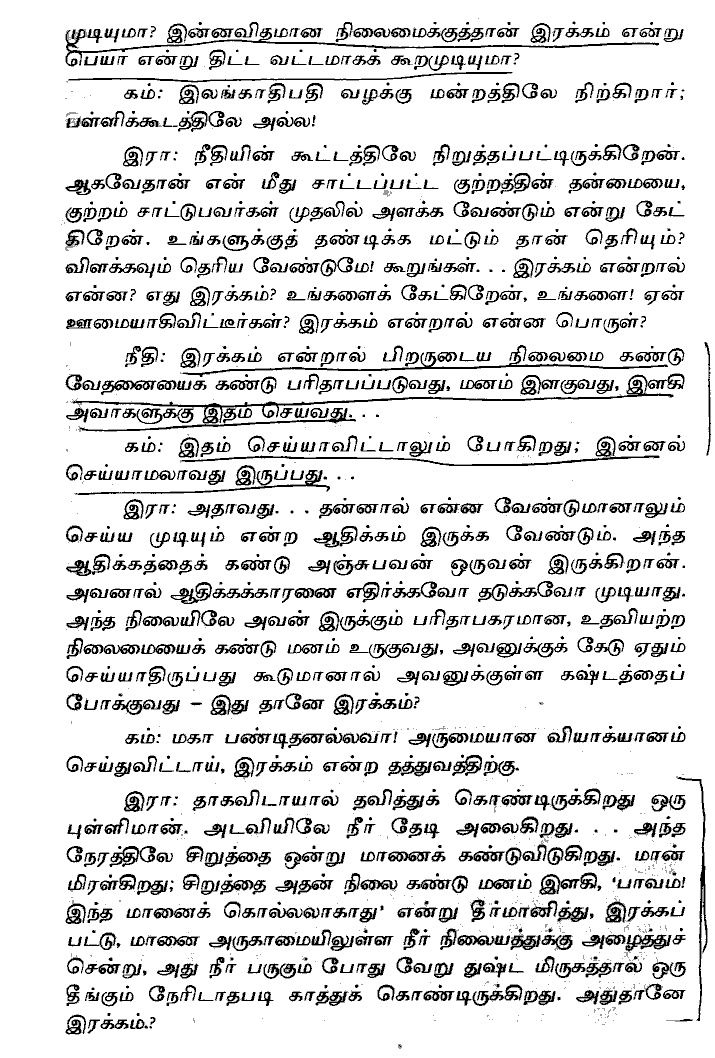 முடியுமா? இன்னவிதமான நிலைமைக்குத்தான் இரக்கம் என்று
பெயர் என்று திட்ட வட்டமாகக் கூறமுடியுமா?
கம்: இலங்காதிபதி வழக்கு மன்றத்திலே நிற்கிறார்;
பள்ளிக்கூடத்திலே அல்ல!
இரா: நீதியின் கூட்டத்திலே நிறுத்தப்பட்டிருக்கிறேன்.
ஆகவேதான் என் மீது சாட்டப்பட்ட குற்றத்தின் தன்மையை,
குற்றம் சாட்டுபவர்கள் முதலில் அளக்க வேண்டும் என்று கேட்
கிறேன். உங்களுக்குத் தண்டிக்க மட்டும் தான் தெரியும்?
விளக்கவும் தெரிய வேண்டுமே! கூறுங்கள். . . இரக்கம் என்றால்
என்ன? எது இரக்கம்? உங்களைக் கேட்கிறேன், உங்களை! ஏன்
ஊமையாகிவிட்டீர்கள்? இரக்கம் என்றால் என்ன பொருள்?
நீதி: இரக்கம் என்றால் பிறருடைய நிலைமை கண்டு
வேதனையைக் கண்டு பரிதாபப்படுவது, மனம் இளகுவது, இளகி
அவர்களுக்கு இதம் செய்வது. . .
கம்: இதம் செய்யாவிட்டாலும் போகிறது; இன்னல்
செய்யாமலாவது இருப்பது. . .
இரா: அதாவது. . . தன்னால் என்ன வேண்டுமானாலும்
செய்ய முடியும் என்ற ஆதிக்கம் இருக்க வேண்டும். அந்த
ஆதிக்கத்தைக் கண்டு அஞ்சுபவன் ஒருவன் இருக்கிறான்.
அவனால் ஆதிக்கக்காரனை எதிர்க்கவோ தடுக்கவோ முடியாது.
அந்த நிலையிலே அவன் இருக்கும் பரிதாபகரமான, உதவியற்ற
நிலைமையைக் கண்டு மனம் உருகுவது, அவனுக்குக் கேடு ஏதும்
செய்யாதிருப்பது கூடுமானால் அவனுக்குள்ள கஷ்டத்தைப்
போக்குவது – இது தானே இரக்கம்?
கம்: மகா பண்டிதனல்லவா! அருமையான வியாக்யானம்
செய்துவிட்டாய், இரக்கம் என்ற தத்துவத்திற்கு.
இரா: தாகவிடாயால் தவித்துக் கொண்டிருக்கிறது ஒரு
புள்ளிமான். அடவியிலே நீர் தேடி அலைகிறது. . . . அந்த
நேரத்திலே சிறுத்தை ஒன்று மானைக் கண்டுவிடுகிறது. மான்
மிரள்கிறது; சிறுத்தை அதன் நிலை கண்டு மனம் இளகி, ‘பாவம்!
இந்த மானைக் கொல்லலாகாது’ என்று தீர்மானித்து, இரக்கப்
பட்டு, மானை அருகாமையிலுள்ள நீர் நிலையத்துக்கு அழைத்துச்
சென்று, அது நீர் பருகும் போது வேறு துஷ்ட மிருகத்தால் ஒரு
தீங்கும் நேரிடாதபடி காத்துக் கொண்டிருக்கிறது. அதுதானே
இரக்கம்.?